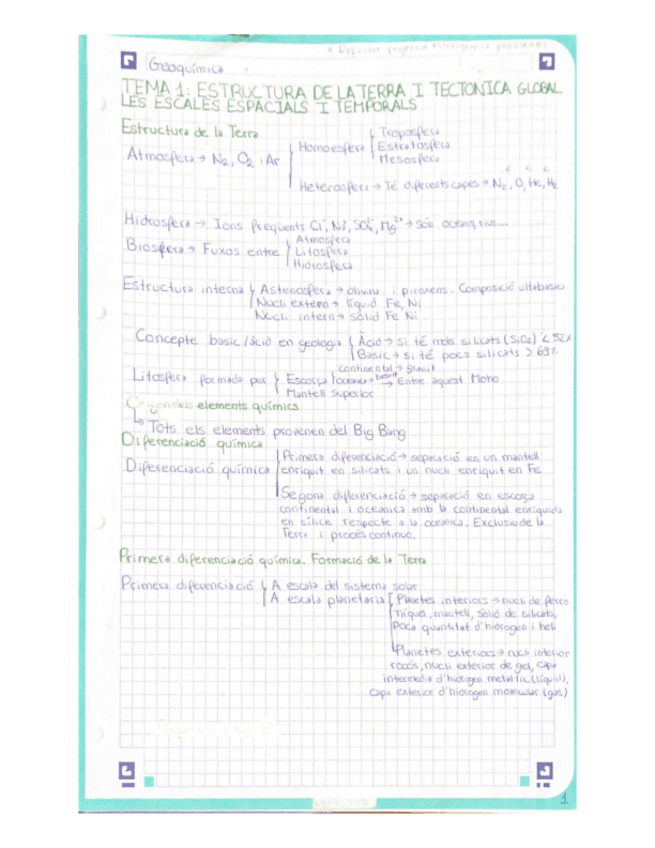 + Repassar
Geoquímica
TEMA 1: ESTRUCTURA DE LA TERRA I TECTONICA GLOBAL
LES ESCALES ESPACIALS I TEMPORALS
Estructura de la Terra
Atmosfera → N₂, O₂ i Ar
Homoesfera
Troposfera
Estratosfera
Mesosfera
Heterosfera → Té diferents capes → N₂, O, He, H₂
Hidrosfera → Ions freqüents Cl⁻, Na⁺, SO₄²⁻, Mg²⁺ → són oceans, rius...
Biosfera → Fuxos entre
Atmosfera
Litosfera
Hidrosfera
Estructura interna
Astenosfera → olivina i piroxens. Composició ultrabasica
Nucli extern → líquid Fe, Ni
Nucli intern → sòlid Fe Ni
Concepte basic/àcid en geologia
Àcid → si té molts silicats (SiO₂) < 52%
Basic → si té pocs silicats > 63%
Litosfera formada per
continental → granit
Escorça oceànica → basalt → Entre aquest Moho
Mantell superior
Origen dels elements químics
↳ Tots els elements provenen del Big Bang
Diferenciació química
Diferenciació química
Primera diferenciació → separació en un mantell
enriquit en silicats i un nucli enriquit en Fe
Segona diferenciació → separació en escorça
continental i oceanica amb la continental enriquida
en sílice respecte a la oceanica. Exclusiu de la
Terra i procés continuo.
Primera diferenciació química. Formació de la Terra
Primera diferenciació
A escala del sistema solar
A escala planetaria
Planetes interiors → nucli de ferro
níquel, mantell, sòlid de silicats,
Poca quantitat d'hidrogen i heli
Planetes exteriors → nucli interior
rocós, nucli exterior de gel, capa
intermedia d'hidrogen metal·lic (líquid),
capa exterior d'hidrogen molecular (gas)
1